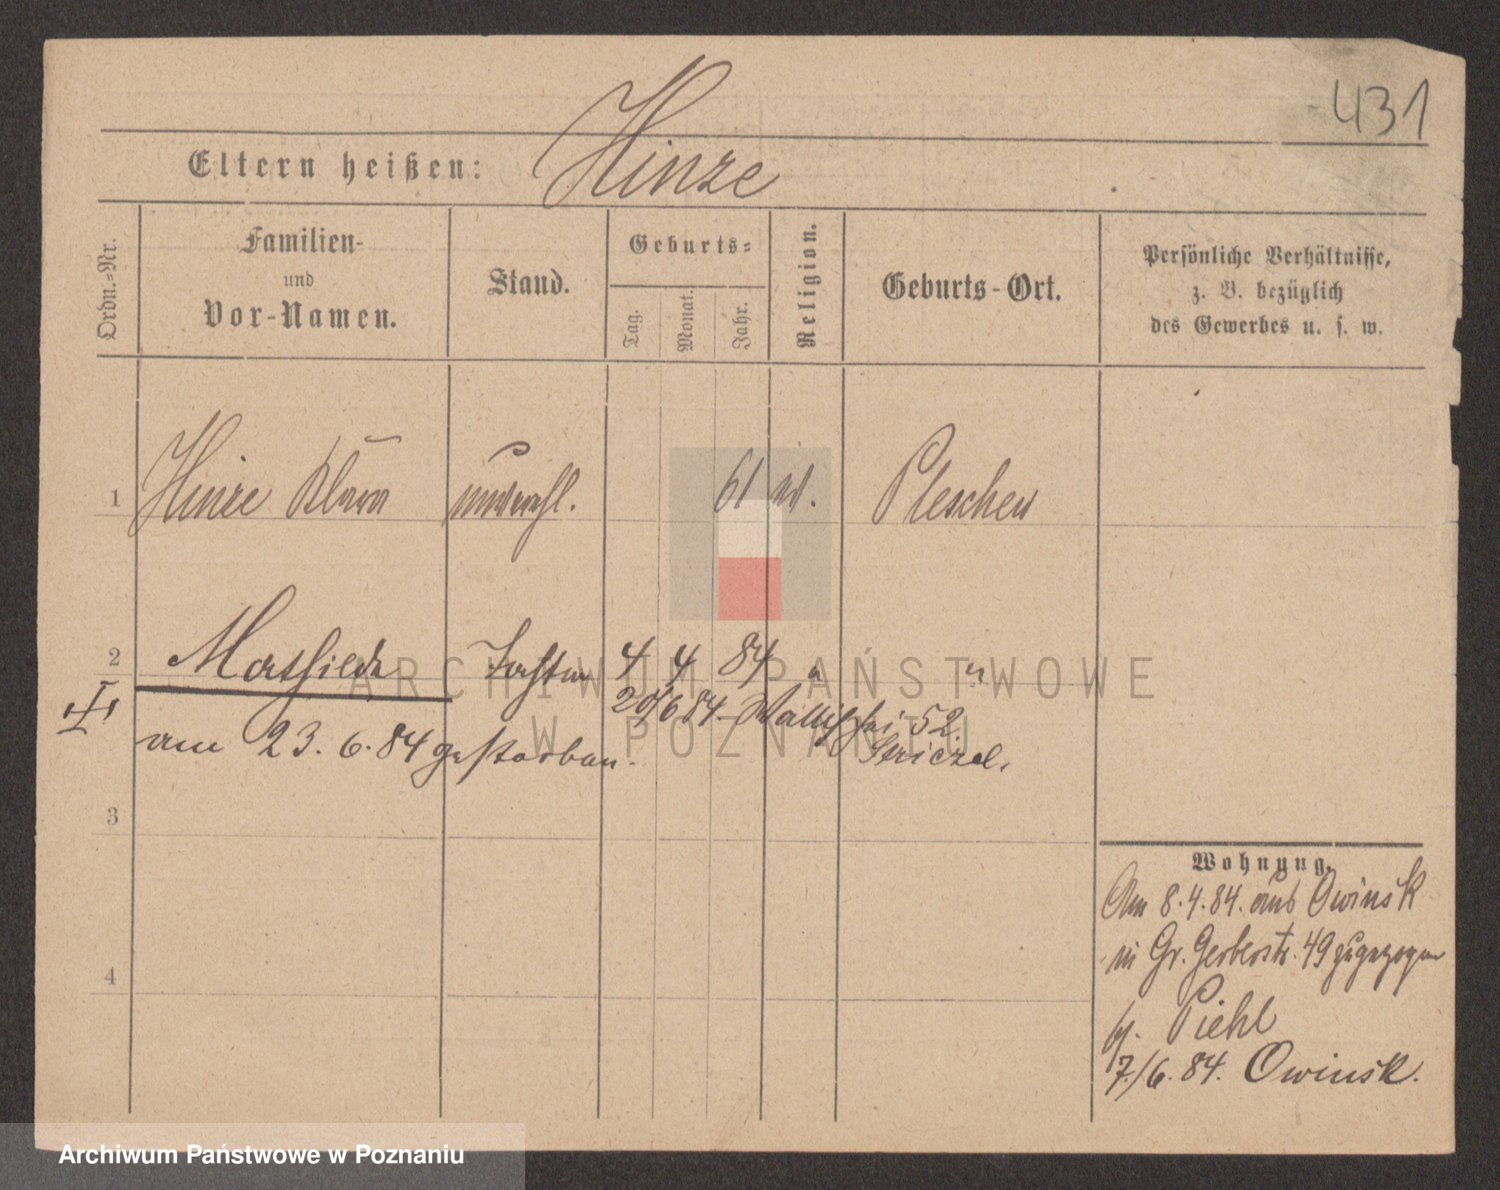 431
Eltern heißen: Hinze
Ordn.-Nr.
Familien-
und
Vor-Namen.
Stand.
Geburts-
Tag.
Monat.
Jahr.
Religion.
Geburts-Ort.
Persönliche Verhältnisse,
z. B. bezüglich
des Gewerbes u. s. w.
1 Hinze Klara unverehl. 61 Pleschen
2 Mathilde Tochter 4 4 84 " "
20/6 84. Wallischei 52.
am 23. 6. 84 gestorben.
3
4
Wohnung.
Am 8. 4. 84. aus Owinsk
in Gr. Gerberstr. 49 zugezogen
b/. Piehl
7./6. 84. Owinsk.
ARCHIWUM PAŃSTWOWE
W POZNANIU
Archiwum Państwowe w Poznaniu